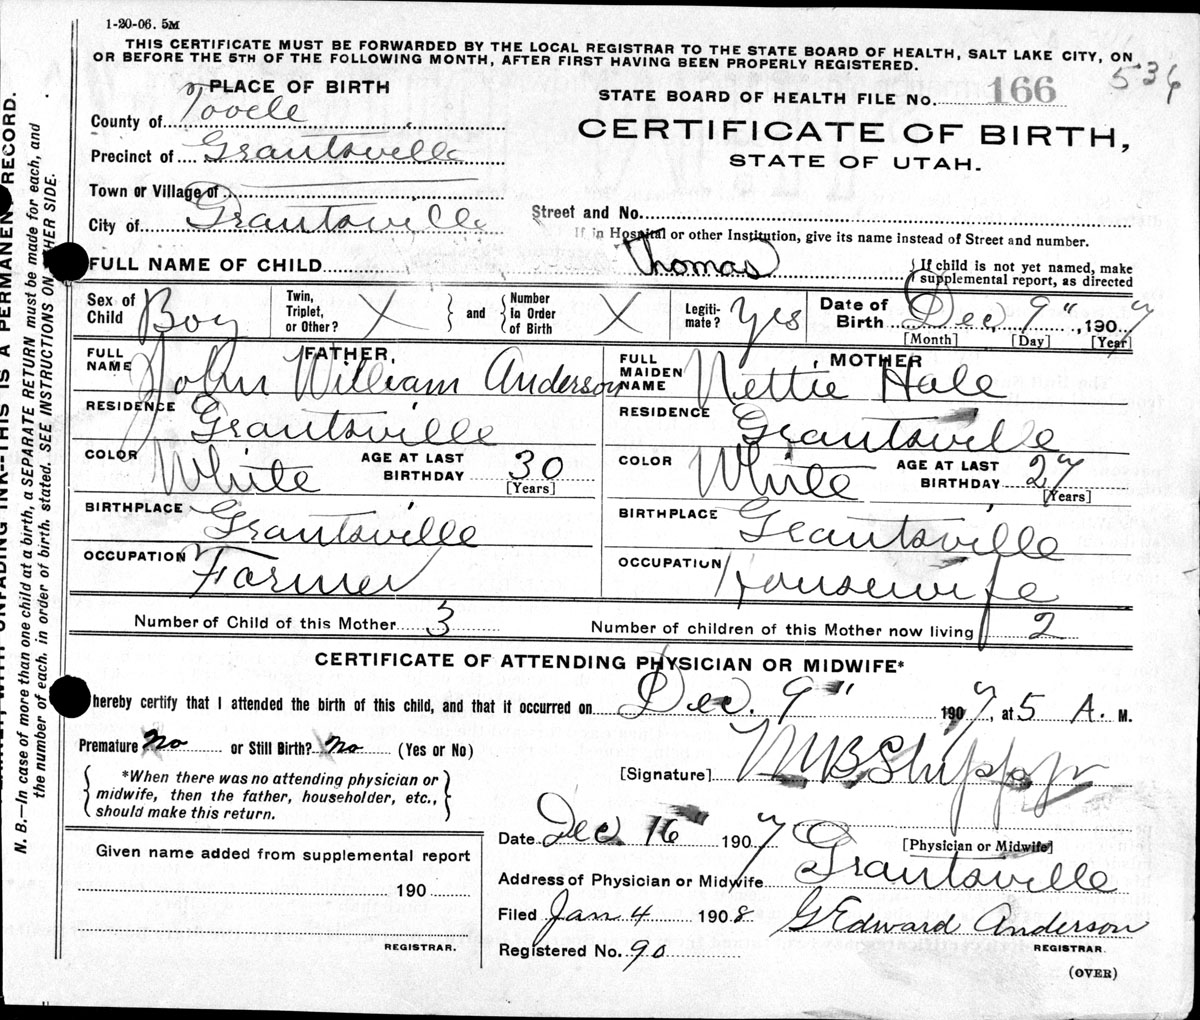 1-20-06. 5M
THIS CERTIFICATE MUST BE FORWARDED BY THE LOCAL REGISTRAR TO THE STATE BOARD OF HEALTH, SALT LAKE CITY, ON
OR BEFORE THE 5TH OF THE FOLLOWING MONTH, AFTER FIRST HAVING BEEN PROPERLY REGISTERED.
536
PLACE OF BIRTH
STATE BOARD OF HEALTH FILE No. 166
County of Tooele
CERTIFICATE OF BIRTH,
Precinct of Grantsville
STATE OF UTAH.
Town or Village of
City of Grantsville
Street and No.
If in Hospital or other Institution, give its name instead of Street and number.
FULL NAME OF CHILD Thomas
{If child is not yet named, make
supplemental report, as directed
Sex of Child Boy
Twin, Triplet, or Other? X } and { Number in Order of Birth X
Legiti-mate? Yes
Date of Birth Dec 9" , 1907
[Month] [Day] [Year]
FATHER,
FULL NAME John William Anderson
MOTHER
FULL MAIDEN NAME Nettie Hale
RESIDENCE Grantsville
RESIDENCE Grantsville
COLOR White AGE AT LAST BIRTHDAY 30 [Years]
COLOR White AGE AT LAST BIRTHDAY 27 [Years]
BIRTHPLACE Grantsville
BIRTHPLACE Grantsville
OCCUPATION Farmer
OCCUPATION Housewife
Number of Child of this Mother 3
Number of children of this Mother now living 2
CERTIFICATE OF ATTENDING PHYSICIAN OR MIDWIFE*
hereby certify that I attended the birth of this child, and that it occurred on Dec. 9" 1907, at 5 A. M.
Premature No or Still Birth? No (Yes or No)
[Signature]
*When there was no attending physician or
midwife, then the father, householder, etc.,
should make this return.
[Physician or Midwife]
Date Dec 16" 1907
Address of Physician or Midwife Grantsville
Given name added from supplemental report
190
REGISTRAR.
Filed Jan 4 1908 G Edward Anderson
REGISTRAR.
Registered No. 90
(OVER)
N. B.—In case of more than one child at a birth, a SEPARATE RETURN must be made for each, and
the number of each, in order of birth, stated. SEE INSTRUCTIONS ON OTHER SIDE.
WITH UNFADING INK--THIS IS A PERMANENT RECORD.